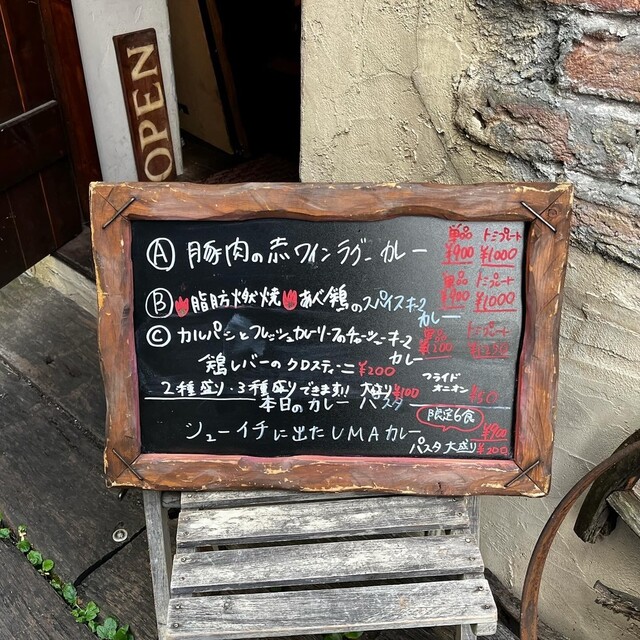 OPEN
Ⓐ 豚肉の赤ワインラグー カレー 単品 ¥900 トミプレート ¥1000
Ⓑ 脂肪燃焼 あべ鶏のスパイスキーマカレー 単品 ¥900 トミプレート ¥1000
Ⓒ カルパシとフレッシュカレーリーフのチャーシューキーマカレー 単品 トミプレート
鶏レバーのクロスティーニ ¥200
2種盛り・3種盛りできます! 大盛り ¥100 フライドオニオン ¥50
本日のカレー パスタ 限定6食 ¥900
シューイチに出たUMAカレー パスタ大盛り ¥200